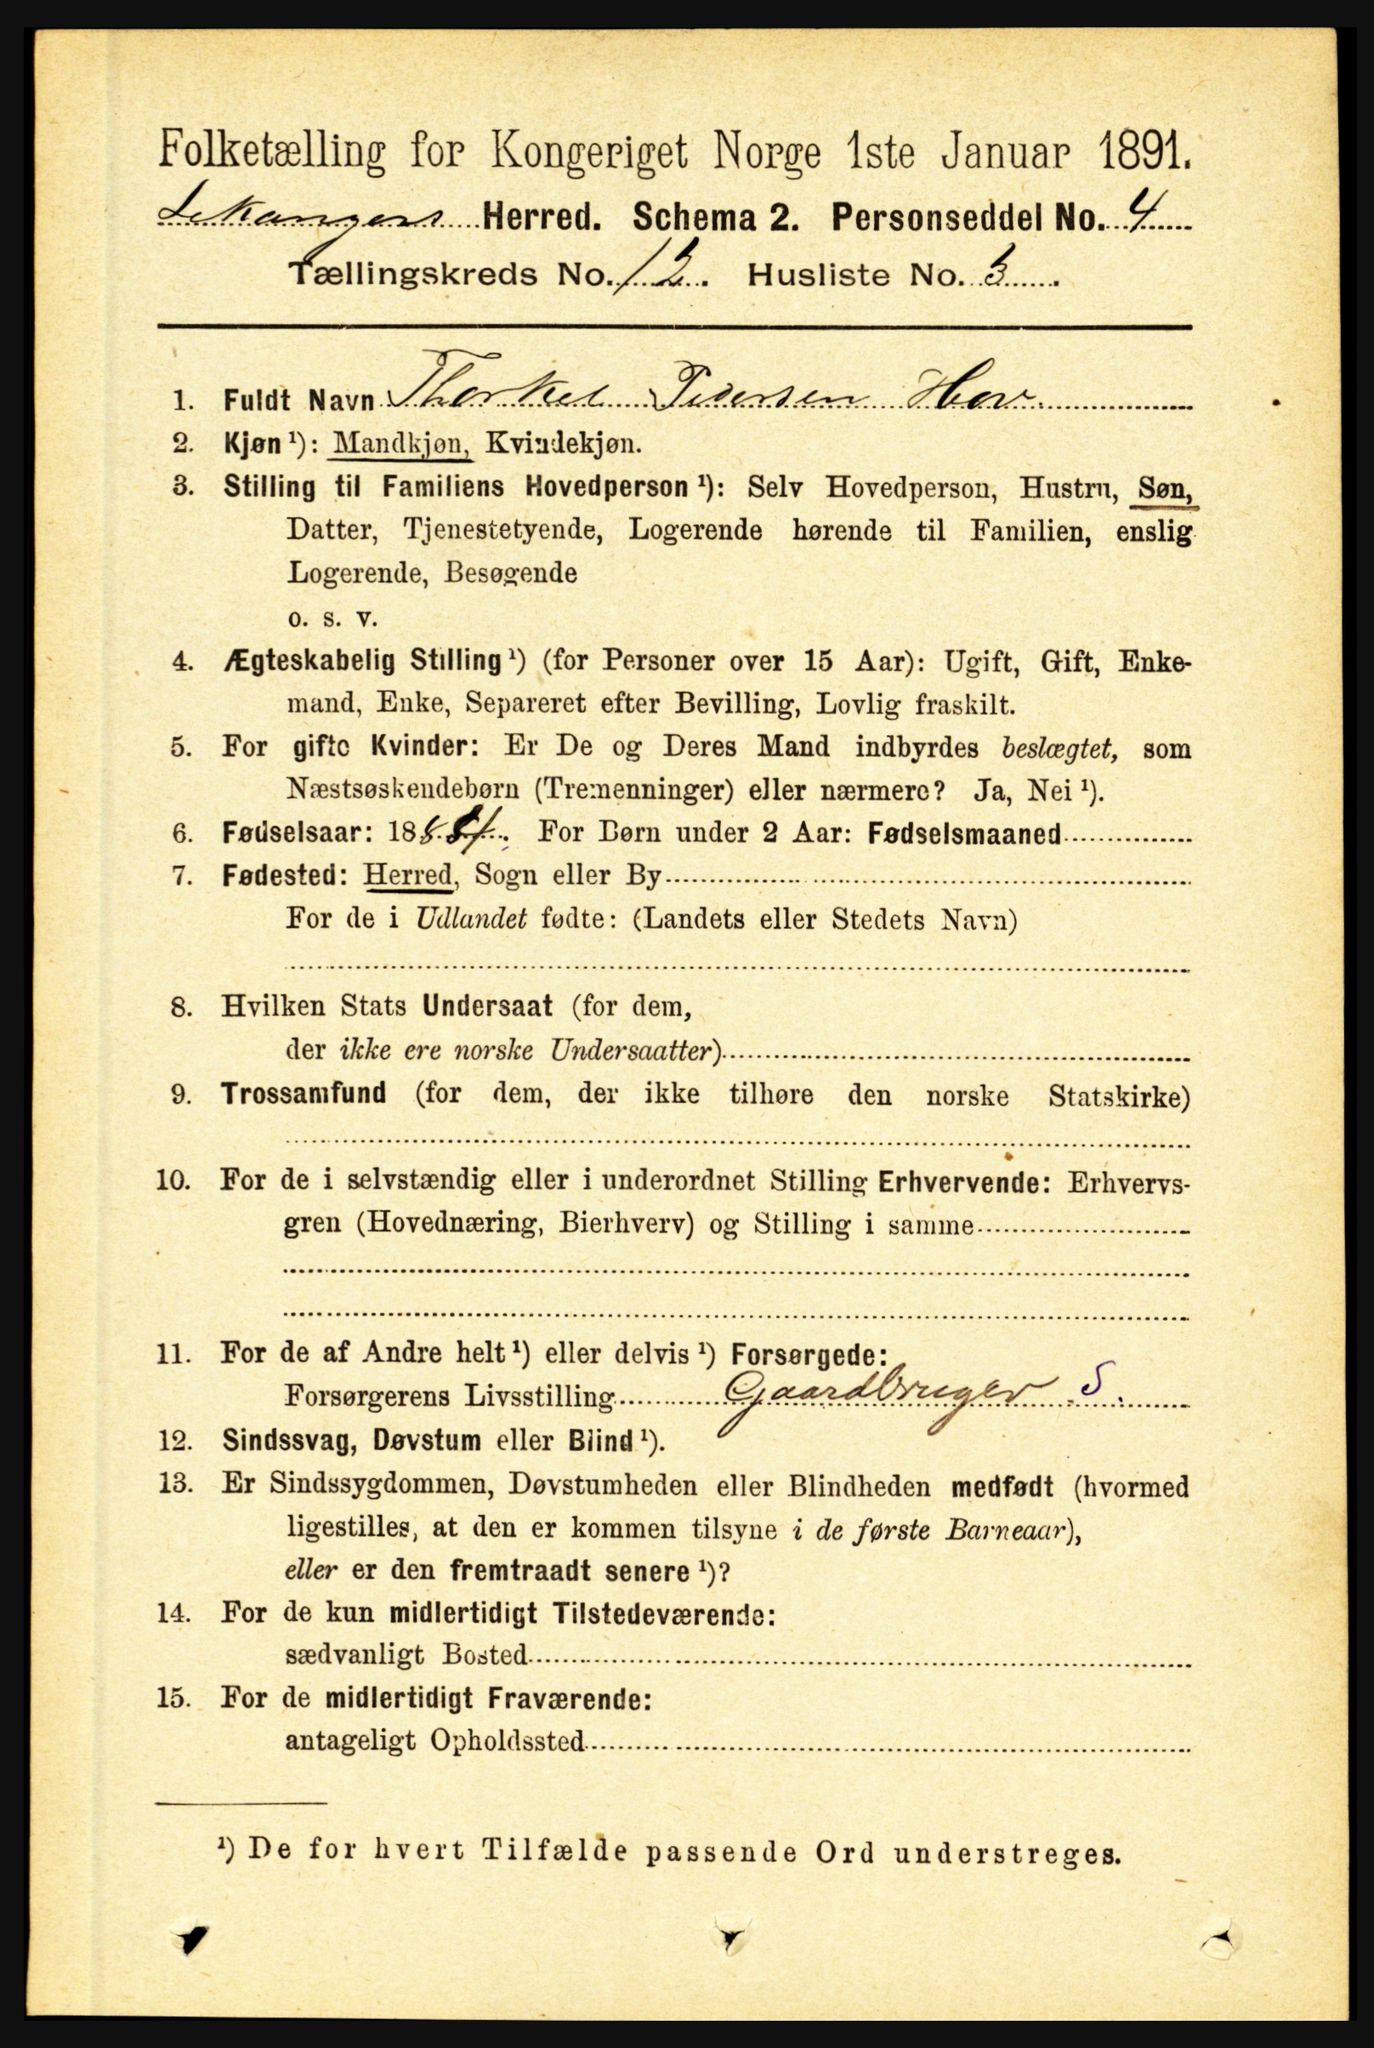 Folketælling for Kongeriget Norge 1ste Januar 1891.
Lekangers Herred. Schema 2. Personseddel No. 4
Tællingskreds No. 12. Husliste No. 3.
1. Fuldt Navn Thorkel Pedersen Hov
2. Kjøn ¹): Mandkjøn, Kvindekjøn.
3. Stilling til Familiens Hovedperson ¹): Selv Hovedperson, Hustru, Søn,
Datter, Tjenestetyende, Logerende hørende til Familien, enslig
Logerende, Besøgende
o. s. v.
4. Ægteskabelig Stilling ¹) (for Personer over 15 Aar): Ugift, Gift, Enke-
mand, Enke, Separeret efter Bevilling, Lovlig fraskilt.
5. For gifte Kvinder: Er De og Deres Mand indbyrdes beslægtet, som
Næstsøskendebørn (Tremenninger) eller nærmere? Ja, Nei ¹).
6. Fødselsaar: 18 For Børn under 2 Aar: Fødselsmaaned
7. Fødested: Herred, Sogn eller By
For de i Udlandet fødte: (Landets eller Stedets Navn)
8. Hvilken Stats Undersaat (for dem,
der ikke ere norske Undersaatter)
9. Trossamfund (for dem, der ikke tilhøre den norske Statskirke)
10. For de i selvstændig eller i underordnet Stilling Erhvervende: Erhvervs-
gren (Hovednæring, Bierhverv) og Stilling i samme
11. For de af Andre helt ¹) eller delvis ¹) Forsørgede:
Forsørgerens Livsstilling Gaardbruger S.
12. Sindssvag, Døvstum eller Blind ¹).
13. Er Sindssygdommen, Døvstumheden eller Blindheden medfødt (hvormed
ligestilles, at den er kommen tilsyne i de første Barneaar),
eller er den fremtraadt senere ¹)?
14. For de kun midlertidigt Tilstedeværende:
sædvanligt Bosted
15. For de midlertidigt Fraværende:
antageligt Opholdssted
¹) De for hvert Tilfælde passende Ord understreges.